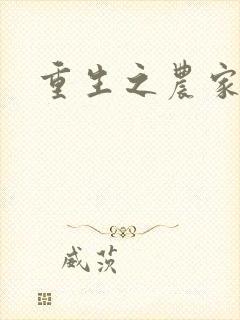 重生之農家
威茨